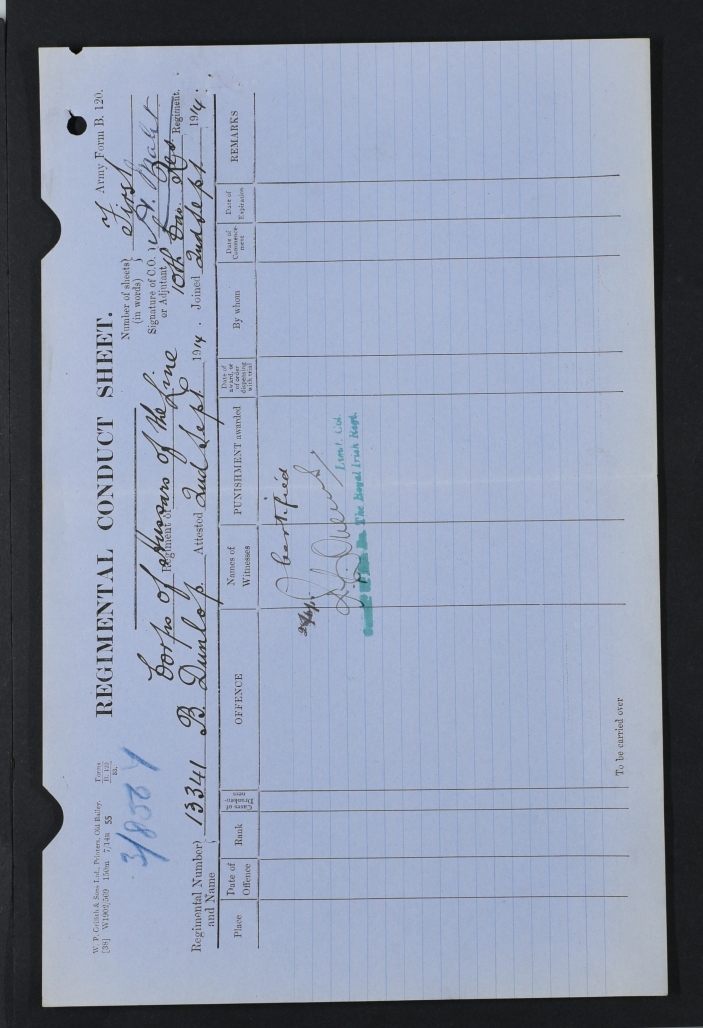 W. P. Griffith & Sons Ltd., Printers, Old Bailey.
[38] W1902/569 150m 7/14m 55
Forms
B. 120
3/8564
Army Form B. 120.
REGIMENTAL CONDUCT SHEET.
Number of sheets (in words) First
Signature of C.O. or Adjutant
Corps of Hussars of the Line
Regiment of
10th Cav. Res Regiment.
Regimental Number and Name 13341 B. Dunlop. Attested 2nd Sept 1914. Joined 2nd Sept 1914.
Place
Date of Offence
Rank
Cases of Drunkenness
OFFENCE
Names of Witnesses
PUNISHMENT awarded
Date of award, or of order dispensing with trial
By whom
Date of Commencement
Date of Expiration
REMARKS
Certified
Lieut. Col.
The Royal Irish Regt.
To be carried over